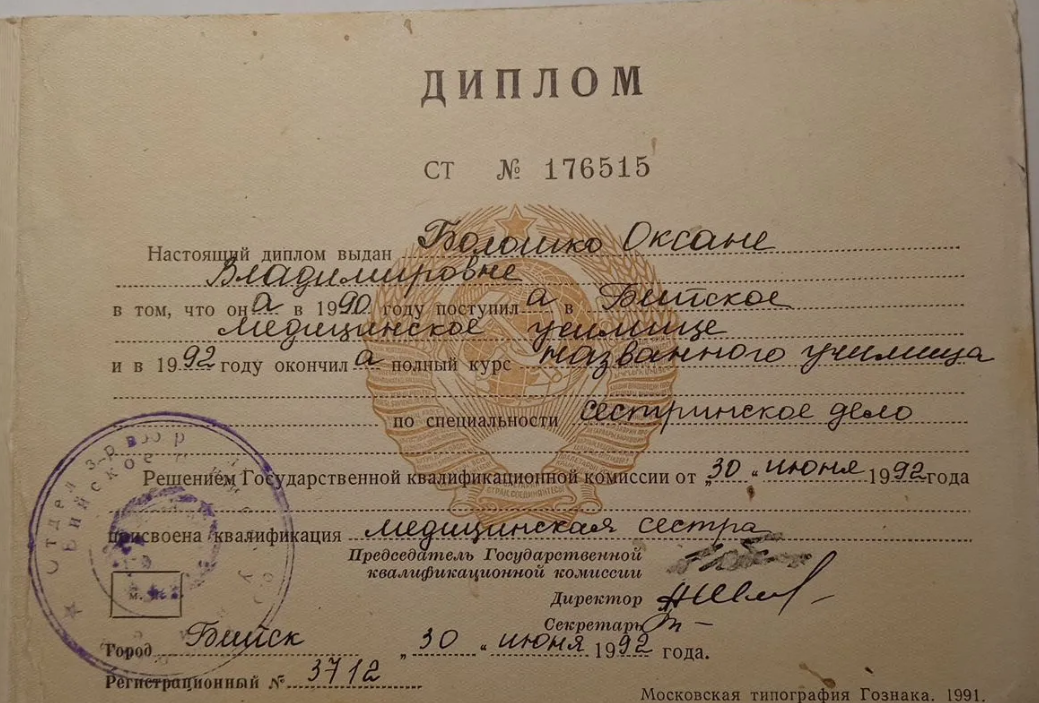 ДИПЛОМ
СТ № 176515
Настоящий диплом выдан Болошко Оксане
Владимировне
в том, что она в 1990 году поступила в Бийское
медицинское училище
и в 1992 году окончила полный курс названного училища
по специальности сестринское дело
Решением Государственной квалификационной комиссии от „30 “ июня 1992 года
присвоена квалификация медицинская сестра
Председатель Государственной
квалификационной комиссии
Директор
Секретарь
М. П.
Город Бийск „ 30 “ июня 1992 года.
Регистрационный № 3712
Московская типография Гознака. 1991.
Отдел
Бийское